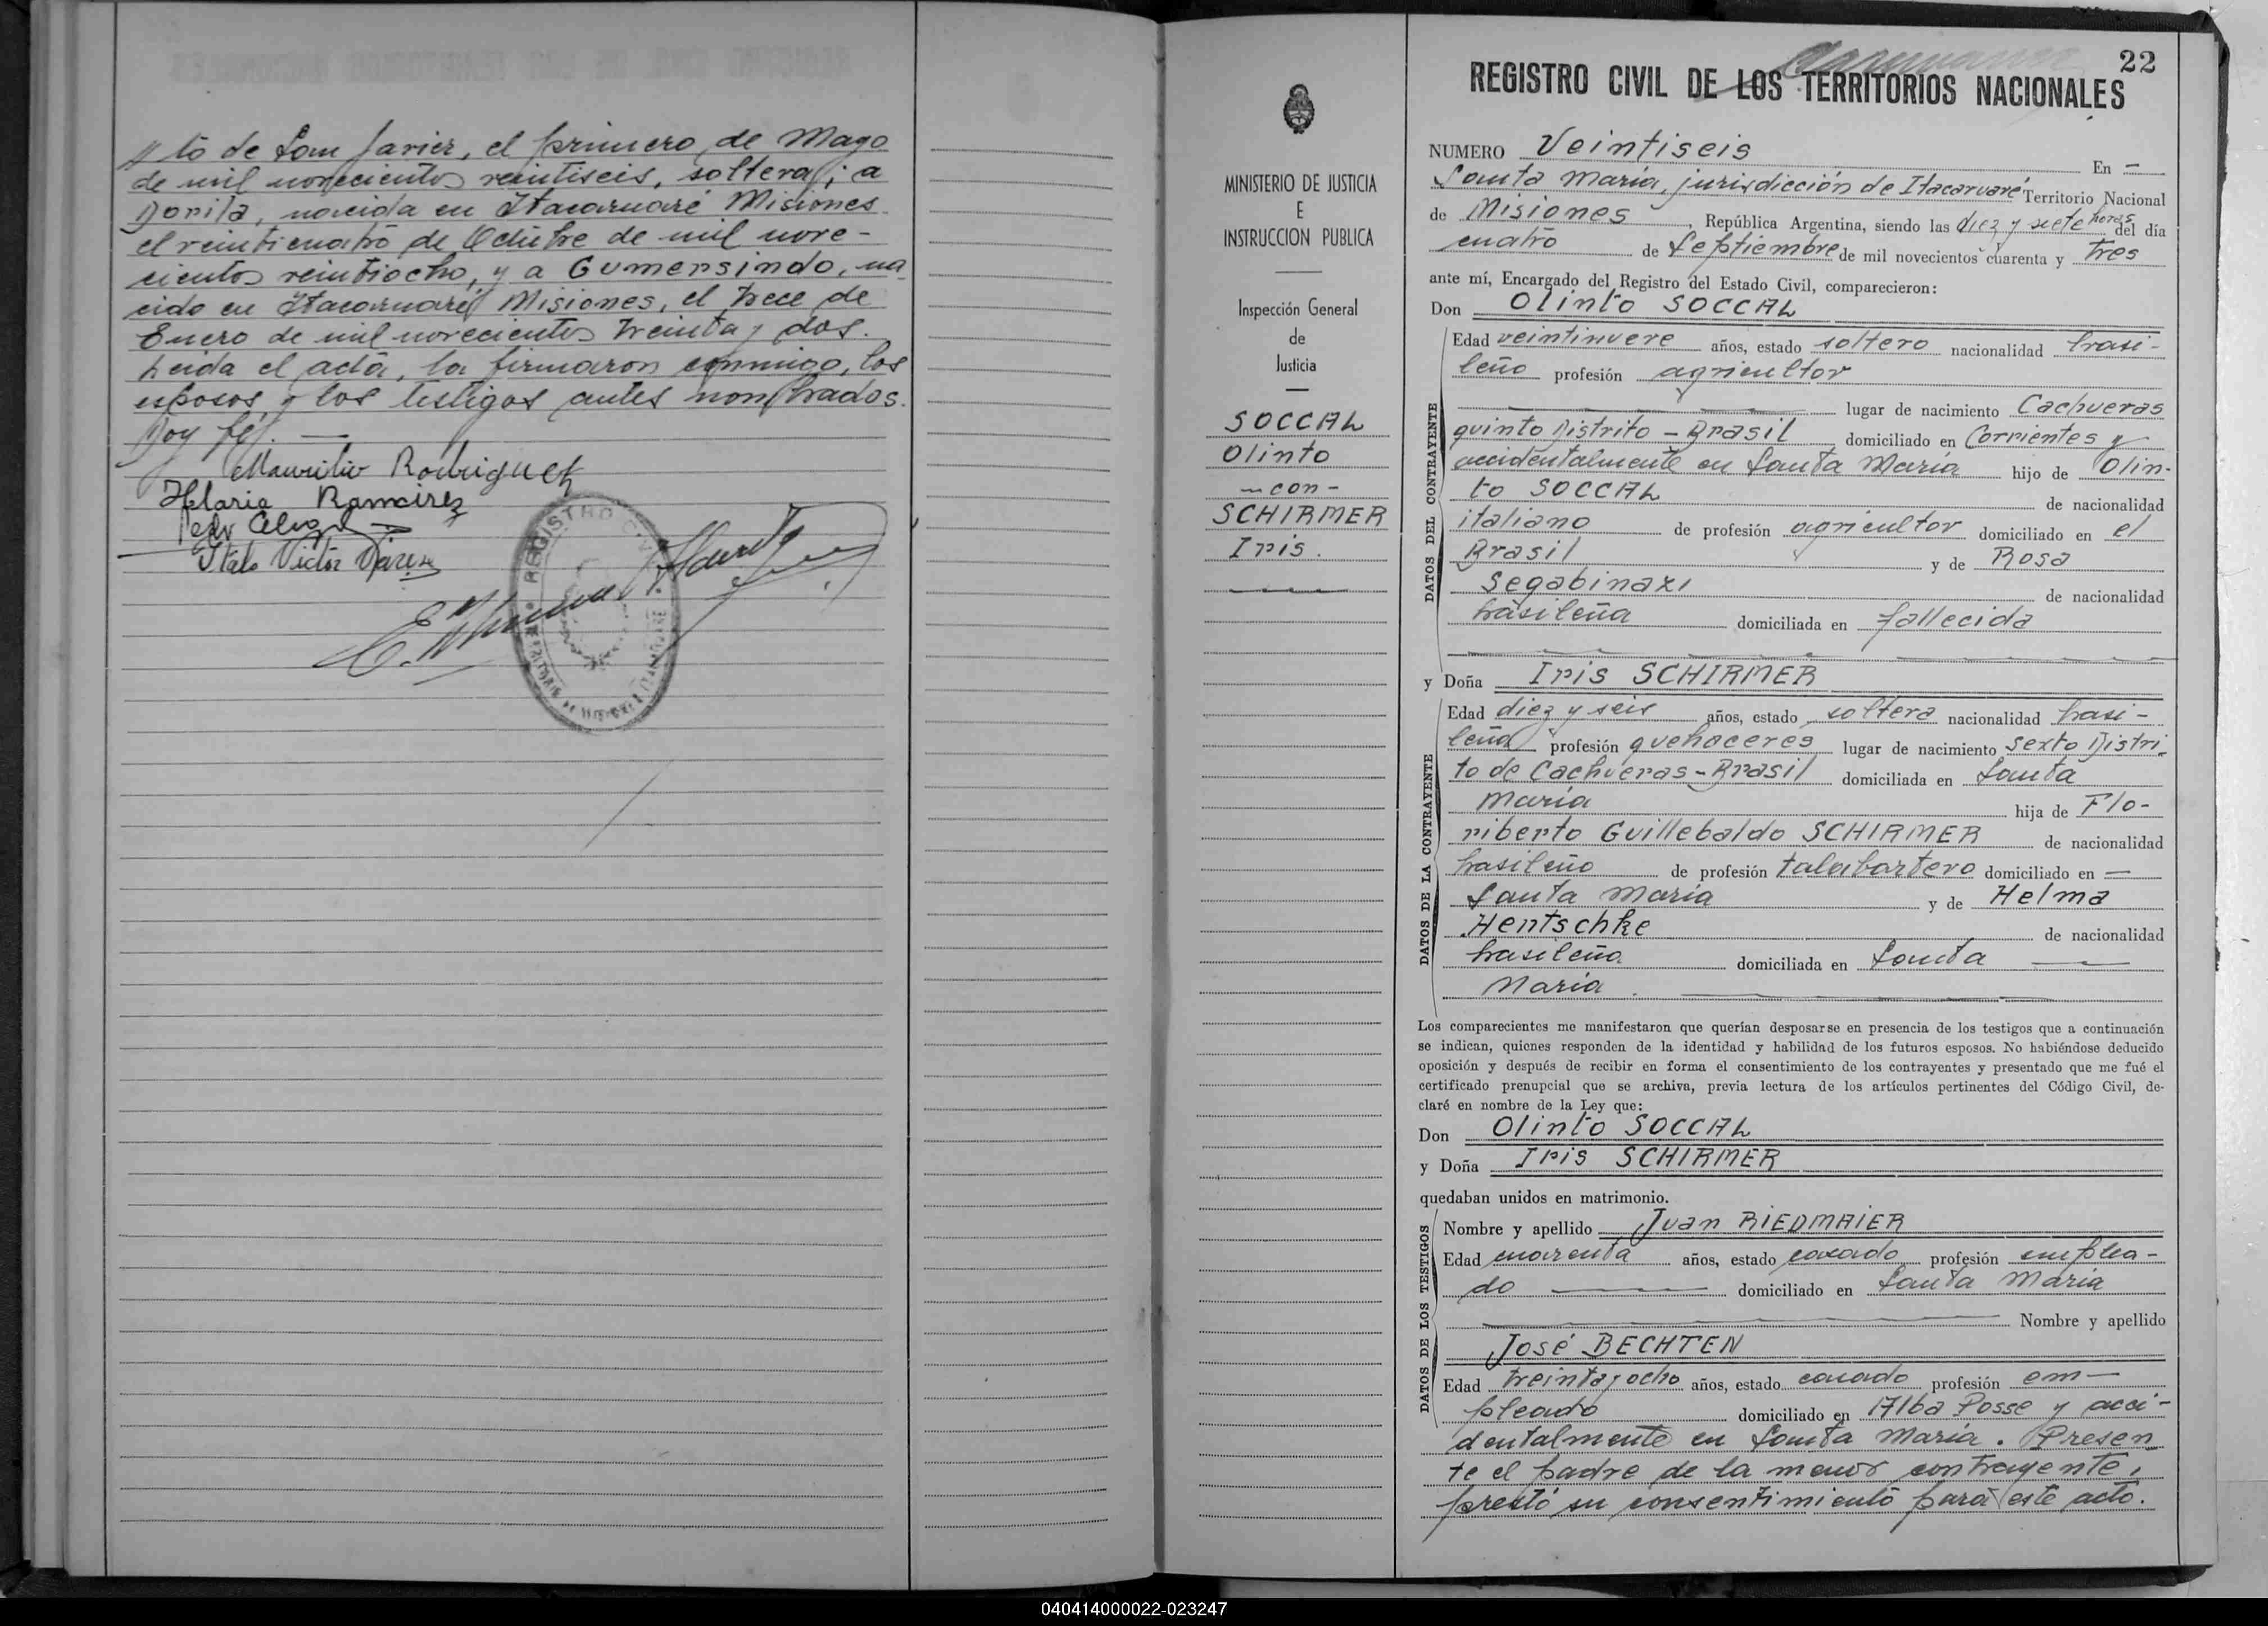 to de San Javier, el primero de Mayo
de mil novecientos veintiseis, soltera; a
Dorila, nacida en Itacaruaré Misiones
el veinticuatro de Octubre de mil nove-
cientos veintiocho, y a Gumersindo, na
cido en Itacaruaré Misiones, el trece de
Enero de mil novecientos treinta y dos.
Leida el acta, la firmaron conmigo, los
esposos y los testigos antes nombrados.
Doy fé.
Maurilio Rodriguez
Hilaria Ramirez
Italo Victor
REGISTRO CIVIL
22
REGISTRO CIVIL DE LOS TERRITORIOS NACIONALES
MINISTERIO DE JUSTICIA
E
INSTRUCCION PUBLICA
Inspección General
de
Justicia
SOCCAL
Olinto
- con -
SCHIRMER
Iris.
NUMERO Veintiseis En -
Santa María, jurisdicción de Itacaruaré Territorio Nacional
de Misiones, República Argentina, siendo las diez y siete horas del día
cuatro de Septiembre de mil novecientos cuarenta y tres
ante mí, Encargado del Registro del Estado Civil, comparecieron:
Don Olinto SOCCAL
DATOS DEL CONTRAYENTE
Edad veintinueve años, estado soltero nacionalidad brasi-
leño profesión agricultor
lugar de nacimiento Cachueras
quinto Distrito - Brasil domiciliado en Corrientes y
accidentalmente en Santa María hijo de Olin-
to SOCCAL de nacionalidad
italiano de profesión agricultor domiciliado en el
Brasil y de Rosa
Segabinazi de nacionalidad
brasileña domiciliada en fallecida
y Doña Iris SCHIRMER
DATOS DE LA CONTRAYENTE
Edad diez y seis años, estado soltera nacionalidad brasi-
leña profesión quehaceres lugar de nacimiento Sexto Distri-
to de Cachueras - Brasil domiciliada en Santa
María hija de Flo-
riberto Guillebaldo SCHIRMER de nacionalidad
brasileño de profesión talabartero domiciliado en -
Santa María y de Helma
Hentschke de nacionalidad
brasileña domiciliada en Santa
María.
Los comparecientes me manifestaron que querían desposarse en presencia de los testigos que a continuación
se indican, quienes responden de la identidad y habilidad de los futuros esposos. No habiéndose deducido
oposición y después de recibir en forma el consentimiento de los contrayentes y presentado que me fué el
certificado prenupcial que se archiva, previa lectura de los artículos pertinentes del Código Civil, de-
claré en nombre de la Ley que:
Don Olinto SOCCAL
y Doña Iris SCHIRMER
quedaban unidos en matrimonio.
DATOS DE LOS TESTIGOS
Nombre y apellido Juan RIEDMAIER
Edad cuarenta años, estado casado profesión emplea-
do domiciliado en Santa María
Nombre y apellido
José BECHTEN
Edad treinta y ocho años, estado casado profesión em-
pleado domiciliado en Alba Posse y acci-
dentalmente en Santa María. Presen
te el padre de la menor contrayente,
prestó su consentimiento para este acto.
040414000022-023247